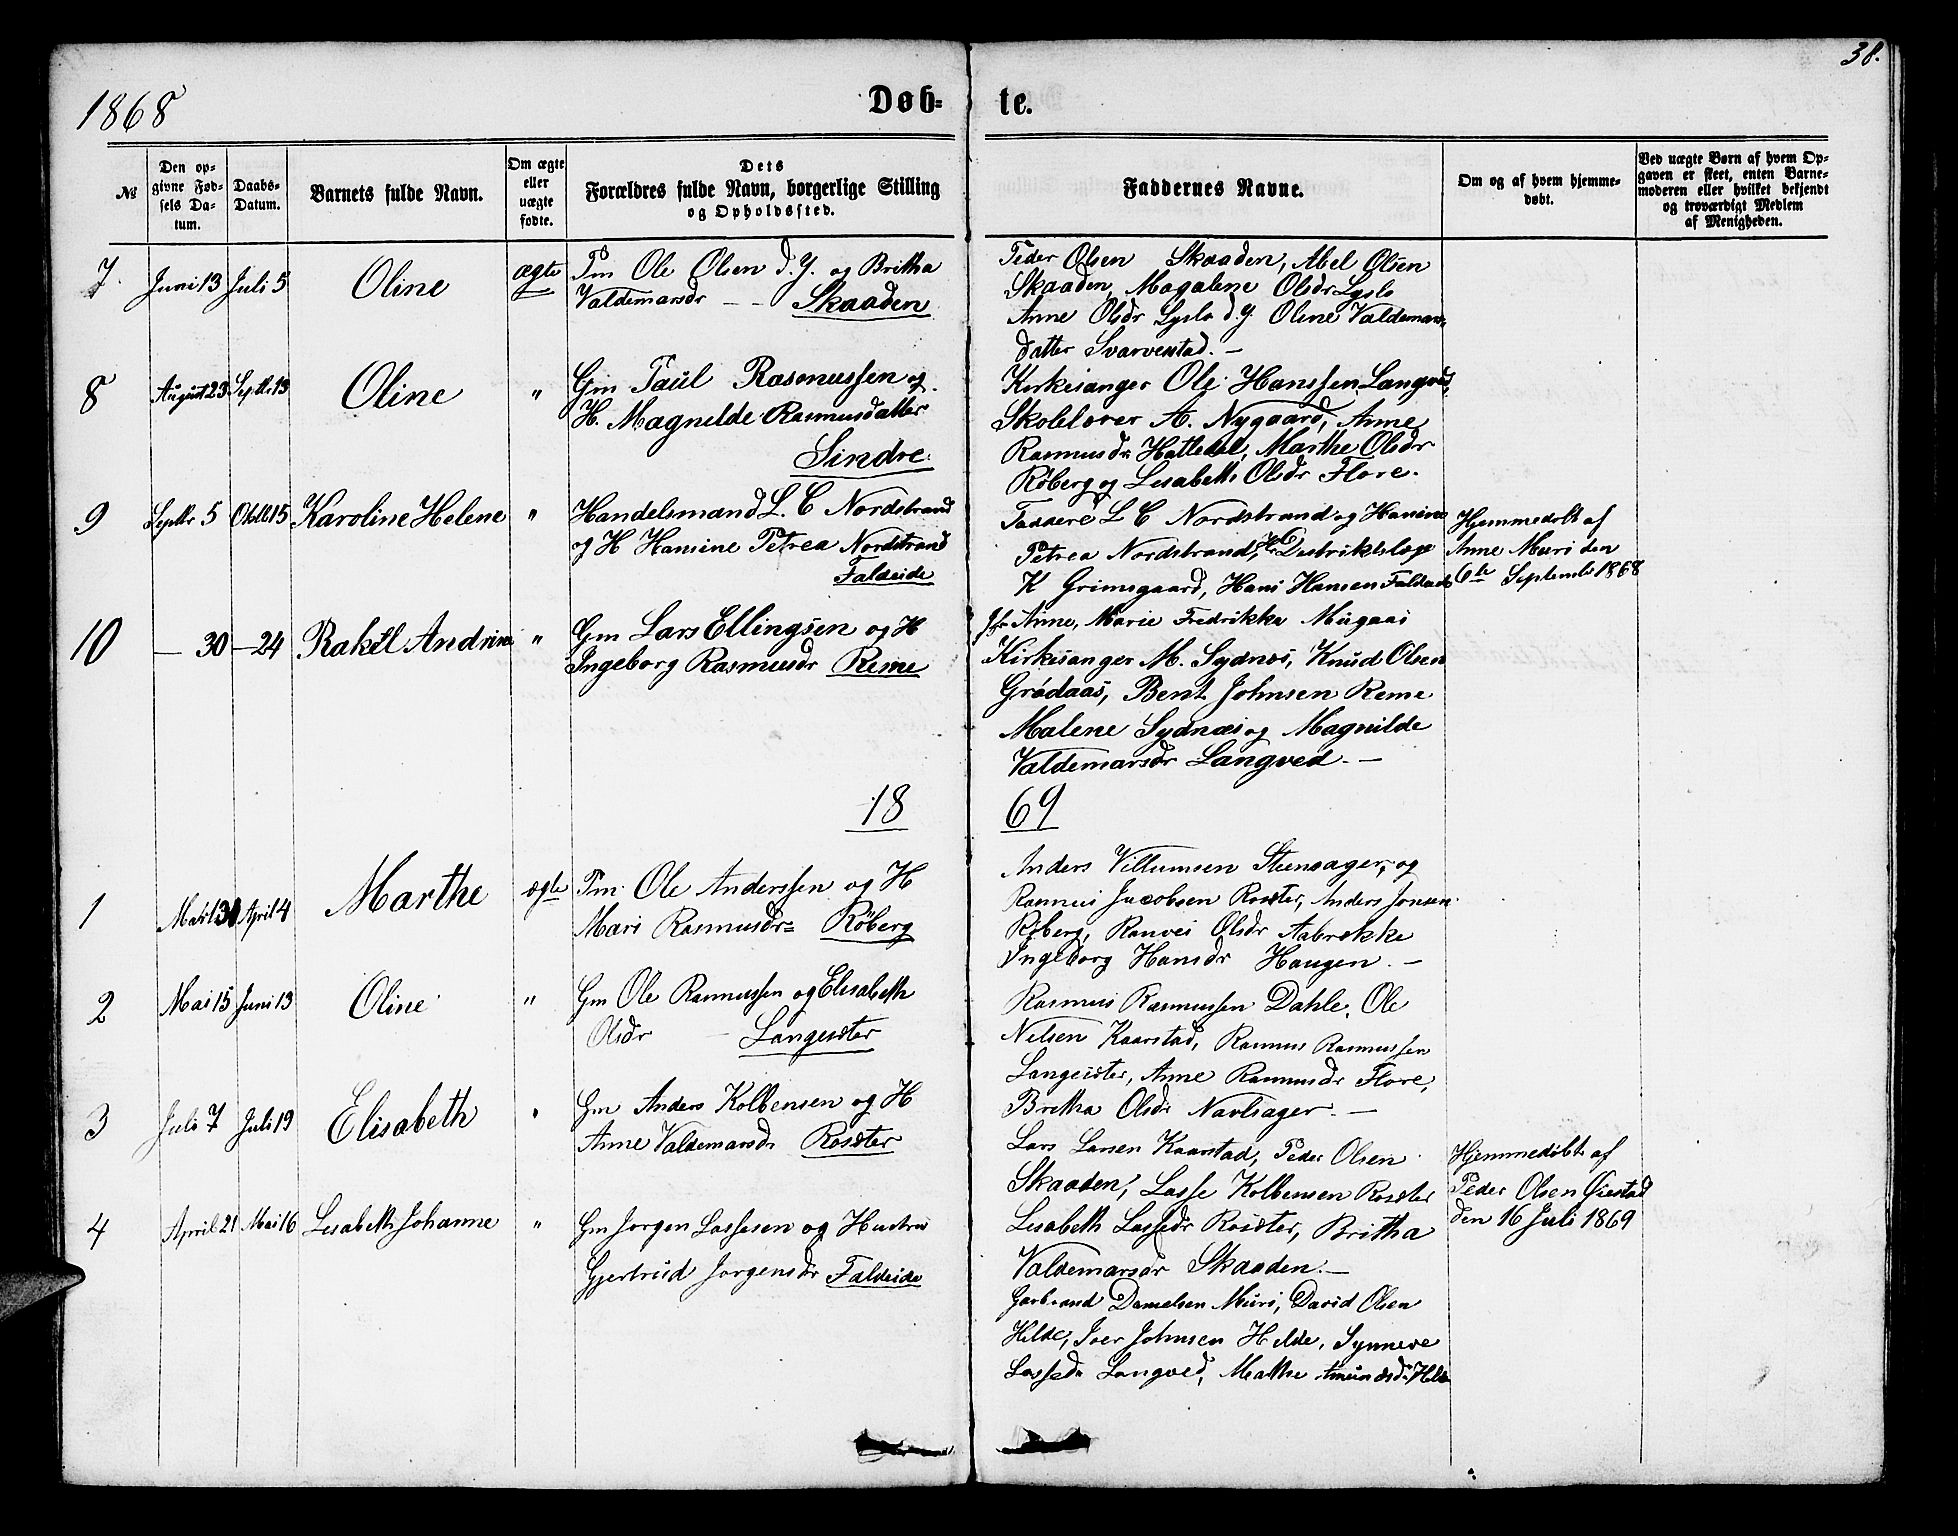 38.
1868 Døb- te.
№
Den opgivne Fødsels Datum.
Daabs-Datum.
Barnets fulde Navn.
Om ægte eller uægte fødte.
Dets Forældres fulde Navn, borgerlige Stilling og Opholdssted.
Faddernes Navne.
Om og af hvem hjemmedøbt.
Ved uægte Børn af hvem Opgaven er skeet, enten Barnemoderen eller hvilket bekjendt og troværdigt Medlem af Menigheden.
7 Juni 13 Juli 5 Oline ægte Pm Ole Olsen d.y. og Britha
Valdemarsdr - - Skaaden
Peder Olsen Skaaden, Abel Olsen
Skaaden, Magalene Olsdr Lyslo
Anne Olsdr Lyslo d.y. Oline Valdemars
datter Svarvestad. -
8 August 23 Septbr 13 Oline " Gm Paul Rasmussen og
H. Magnilde Rasmusdatter
Sindre
Kirkesanger Ole Hanssen Langved,
Skolelærer A. Nygaard, Anne
Rasmusdr Hatledal, Marthe Olsdr
Röberg og Lisabeth Olsdr Flore.
9 Septbr 5 Oktbr 15 Karoline Helene " Handelsmand L. C Nordstrand
og H Hansine Petrea Nordstrand
Faldeide
Faddere L C Nordstrand og Hansine
Petrea Nordstrand, Distriktslæge
K Grimsgaard, Hans Hansen Faldeide
Jfr Anne, Marie Fredrikke Mugaas
Hjemmedøbt af
Anne Muri den
6te September 1868
10 - 30 - 24 Rakel Andrine " Gm Lars Ellingsen og H
Ingeborg Rasmusdr Reme
Kirkesanger M. Sydnes, Knud Olsen
Grödaas, Bent Johnsen Reme
Malene Sydnæs og Magnilde
Valdemarsdr Langved. -
18 69
1 Mars 31 April 4 Marthe ægte Pm. Ole Anderssen og H
Mari Rasmusdr= Röberg
Anders Villumsen Steensager, og
Rasmus Jacobsen Rosæter, Anders Jonsen
Röberg, Ranvei Olsdr Aabrekke
Ingeborg Hansdr Haugen. -
2 Mai 15 Juni 13 Oline " Gm Ole Rasmussen og Elisabeth
Olsdr - Langesæter
Rasmus Rasmussen Dahle, Ole
Nilsen Kaarstad, Rasmus Rasmussen
Langesæter, Anne Rasmusdr Flore,
Britha Olsdr Navlsager. -
3 Juli 7 Juli 19 Elisabeth " Gm Anders Kolbensen og H
Anne Valdemarsdr Rosæter
Lars Larsen Kaarstad, Peder Olsen
Skaaden, Lasse Kolbensen Rosæter
Lisabeth Lassedr Rosæter, Britha
Valdemarsdr Skaaden. -
Hjemmedøbt af
Peder Olsen Øiestad
den 16 Juli 1869
4 April 21 Mai 16 Lisabeth Johanne " Gm Jorgen Lassesen og Hustru
Gjertrud Jorgensdr Faldeide
Garbrand Danielsen Muri, David Olsen
Hilde, Iver Johnsen Hilde, Synneve
Lassedr Langved, Marthe Amundsdr Hilde